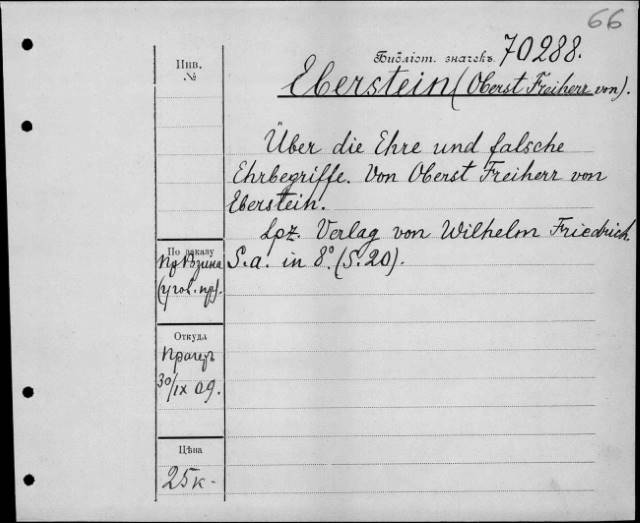 66
Библіот. значекъ 70288.
Инв.
№
Eberstein (Oberst Freiherr von).
Über die Ehre und falsche
Ehrbegriffe. Von Oberst Freiherr von
Eberstein.
Lpz. Verlag von Wilhelm Friedrich.
S.a. in 8°. (S. 20).
По заказу
(угол. пр).
Откуда
30/IX 09.
Цѣна
25 к-